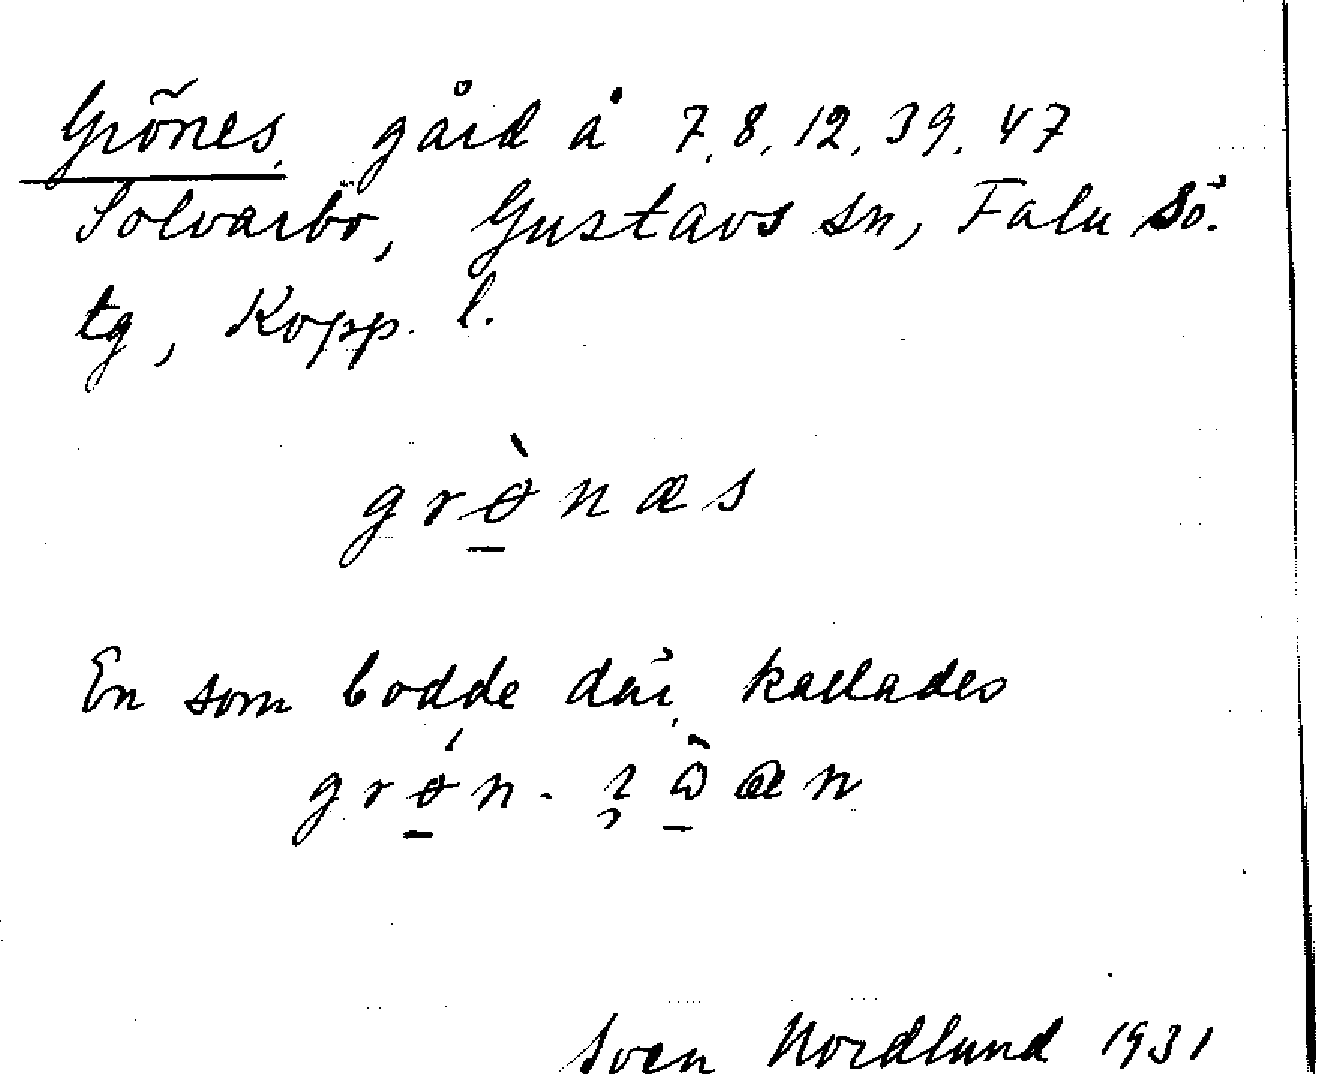 Grönes, gård å 7, 8, 12, 39, 47
Solvarbo, Gustavs sn, Falu Sö.
tg, Kopp. l.
grø̀næs
En som bodde där kallades
grǿn-
Sven Nordlund 1931